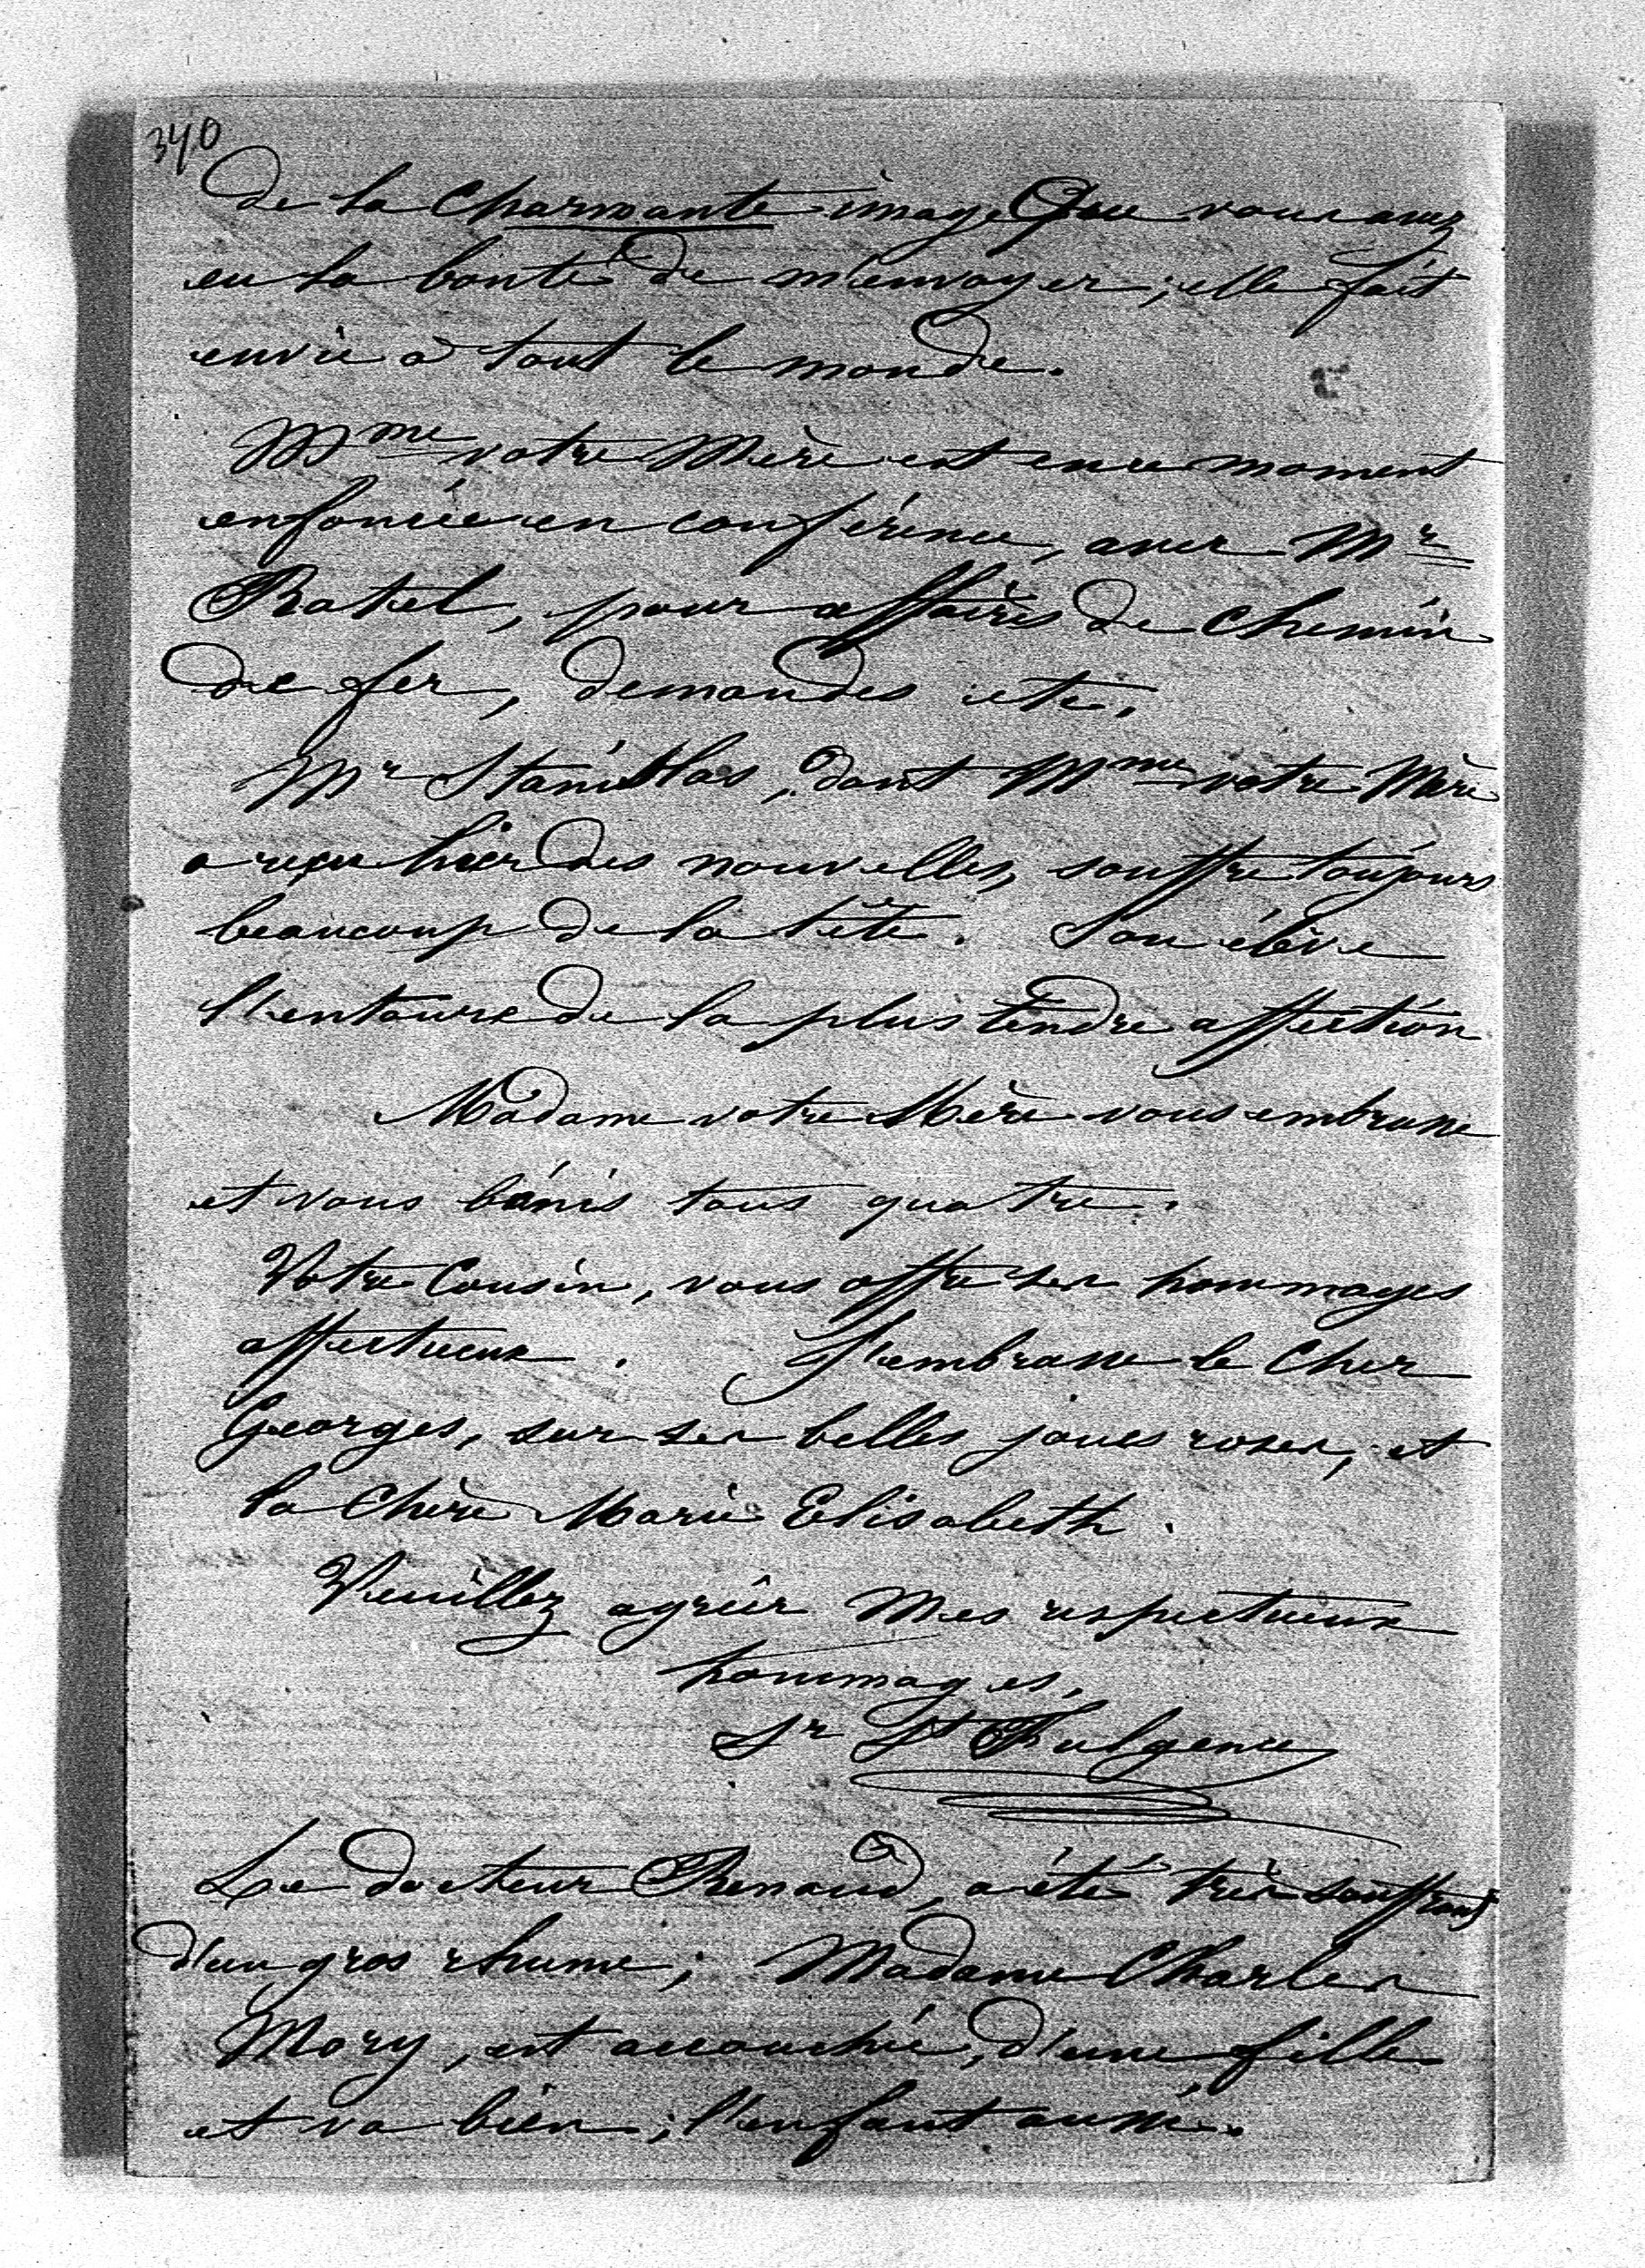 340
de la Charmante image que vous avez
eu la bonté de m'envoyer ; elle fait
envie à tout le monde.
Mme votre Mère est en ce moment
enfoncée en conférence, avec Mr
Ratel, pour affaires de chemin
de fer, demandes etc.
Mr Stanislas, dont Mme votre Mère
a reçu hier des nouvelles, souffre toujours
beaucoup de la tête. Son élève
l'entoure de la plus tendre affection
Madame votre Mère vous embrasse
et vous bénis tous quatre.
Votre Cousin, vous offre ses hommages
affectueux. J'embrasse le Cher
Georges, sur ses belles joues roses, et
la Chère Marie Elisabeth.
Veuillez agréer Mes respectueux
hommages,
Sr St Fulgence
Le docteur Renaud, a été très souffrant
d'un gros rhume ; Madame Charles
Mory, est accouchée, d'une fille
et va bien ; l'enfant aussi.